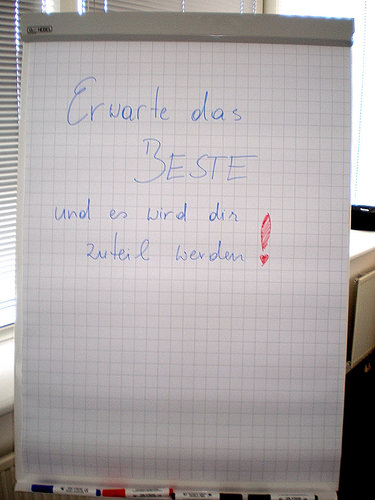 Erwarte das
BESTE
und es wird dir
zuteil werden!